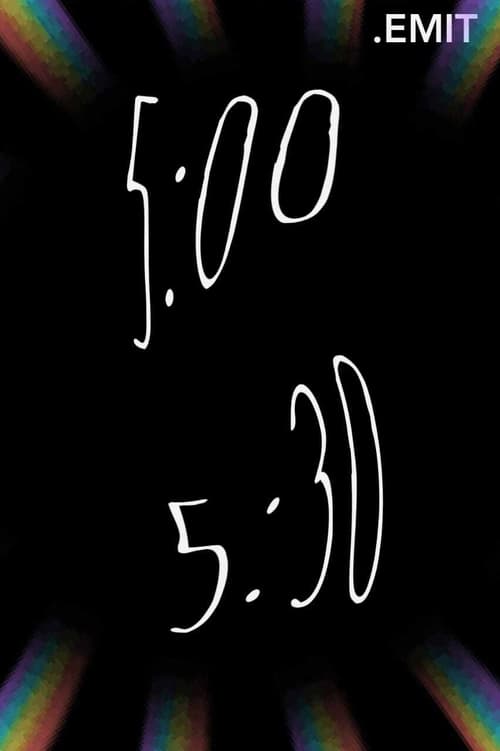 .EMIT
5:00
5:30